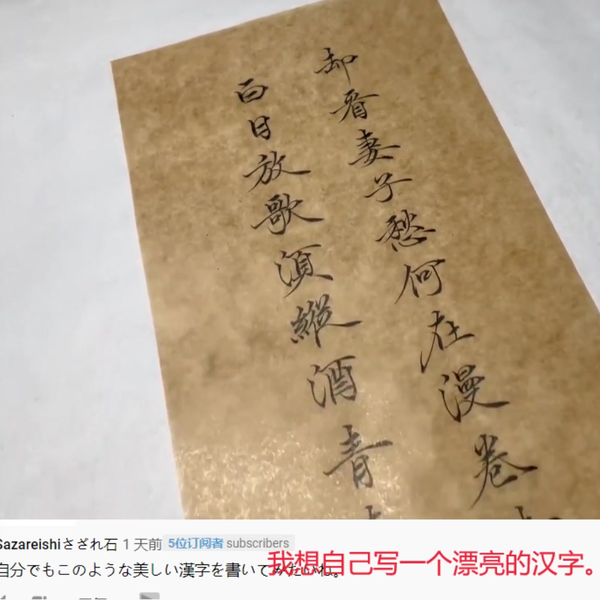 却看妻子愁何在漫卷
白日放歌須縱酒青
Sazareishiさざれ石 1 天前 5位订阅者 subscribers
自分でもこのような美しい漢字を書いてみたいね。
我想自己写一个漂亮的汉字。